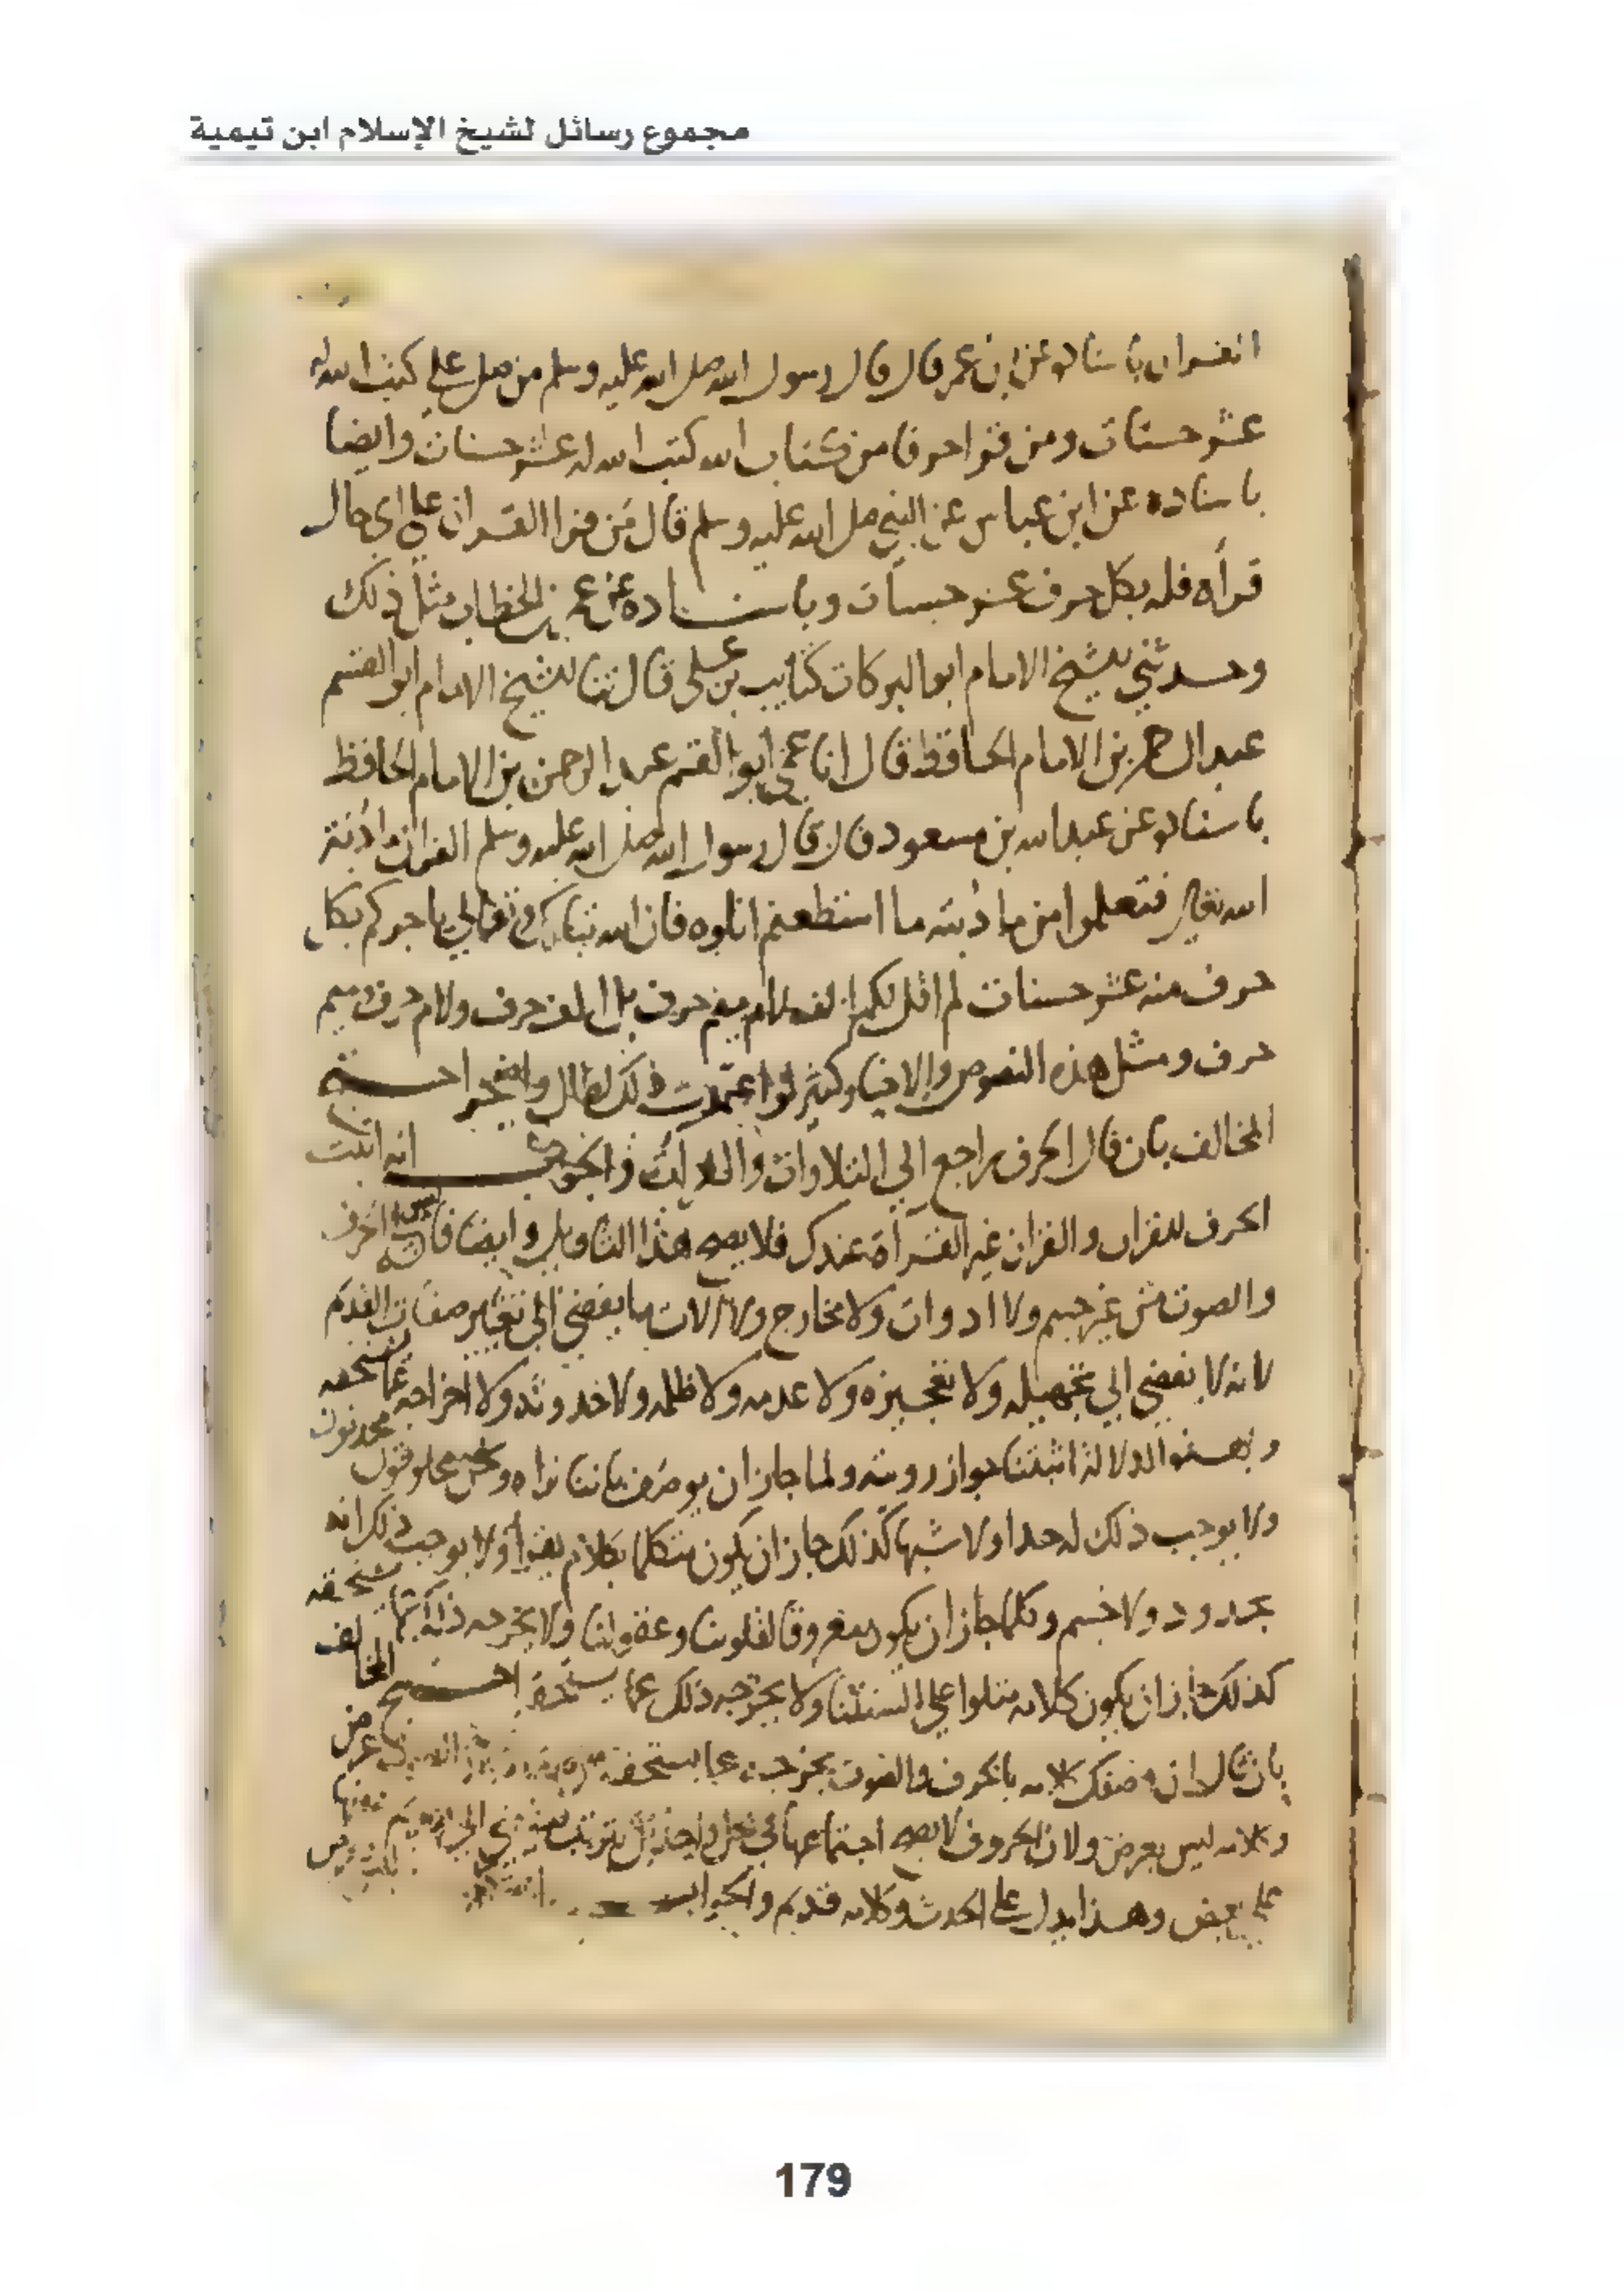 مجموع رسائل لشيخ الإسلام ابن تيمية
باسناده عن ابن عمر قال قال رسول الله صلى الله عليه وسلم من صلى علي كتب الله له
عشر حسنات ومن قرا حرفا من كتاب الله كتب الله له عشر حسنات وايضا
باسناده عن ابن عباس عن النبي صلى الله عليه وسلم قال من قرا القران على اى حال
قرأه فله بكل حرف عشر حسنات وباسناده عن عمر بن الخطاب مثل ذلك
وحدثني الشيخ الامام ابو البركات بن على قال ثنا الشيخ الامام ابو القسم
عبد الرحمن بن الامام الحافظ قال انا عمي ابو القسم عبد الرحمن بن الامام الحافظ
باسناده عن عبد الله بن مسعود قال قال رسول الله صلى الله عليه وسلم القران مادبة
الله تعالى فتعلموا من مادبته ما استطعتم اتلوه فان الله تبارك وتعالى ياجركم بكل
حرف منه عشر حسنات لم اقل لكم الف لام ميم حرف بل الف حرف ولام حرف وميم
حرف ومثل هذه النصوص والاخبار كثير لو ذلك لطال احتج
المخالف بان قال الحرف راجع الي التلاوات والجواب انه اثبت
الحرف للقران والقران غير القرأة عندك فلا يصح هذا التاويل وايضا الحرف
والصوت من غير جسم ولا ادوات ولا مخارج ولا الات يفضي الى تغيير صفات القدم
لانه لا يفضي الي تجهيله ولا تعجيزه ولا عدمه ولا ظلمه ولا حدوثه ولا اخراجه عما يستحقه
وبهذه الدلالة اثبتنا جواز رويته ولما جاز ان يوصف باننا نراه ونحن مخلوقون محدثون
ولا يوجب ذلك له حدا ولا شبها كذلك جاز ان يكون متكلما بكلام يقرأ ولا يوجب ذلك انه
محدود ولا جسم وكما جاز ان يكون معروفا لقلوبنا وعقولنا ولا يخرجه ذلك عما يستحقه
كذلك جاز ان يكون كلامه متلوا على السنتنا ولا يخرجه ذلك عما يستحقه احتج المخالف
بان قال ان وصفك كلامه بالحرف والصوت يخرجه عما يستحقه الصوت عرض
وكلامه ليس بعرض ولان الحروف لا يصح اجتماعها في محل واحد بل يترتب
على بعض وهذا يدل على الحدث وكلامه قديم والجواب
179